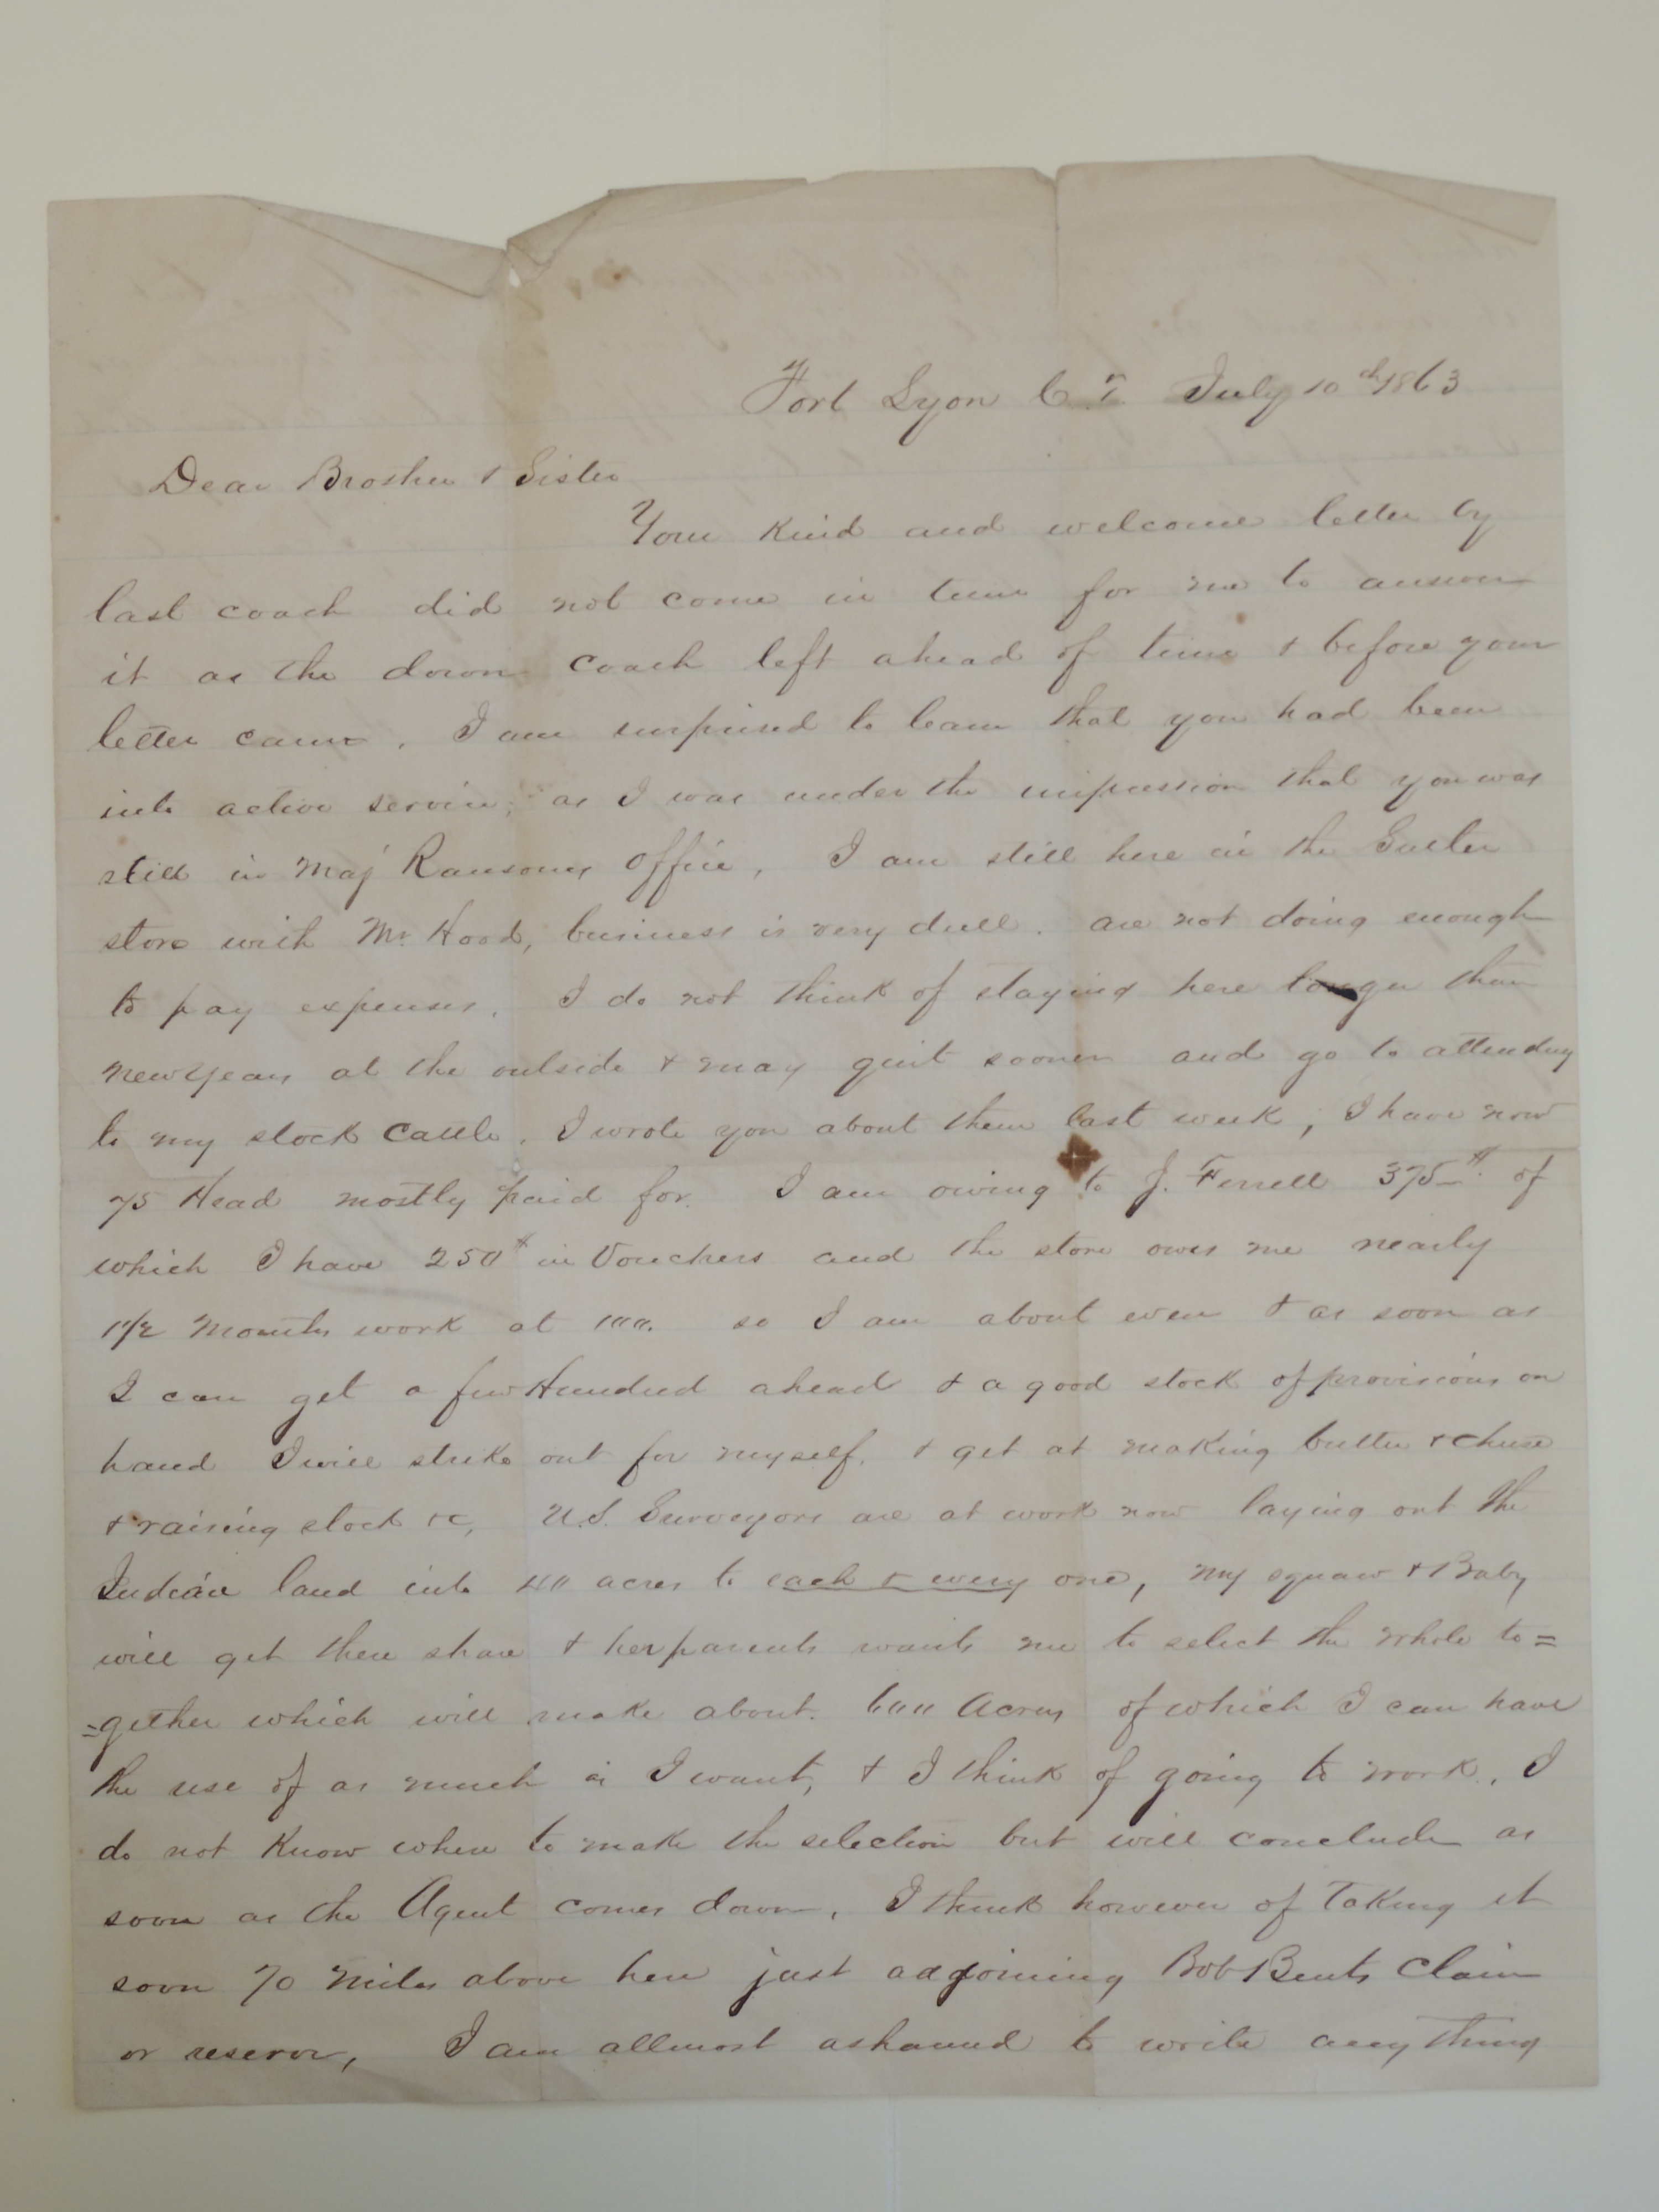 Fort Lyon C.T. July 10th 1863
Dear Brother & Sister
Your kind and welcome letter by
last coach did not come in time for me to answer
it as the down coach left ahead of time & before your
letter came, I am surprised to learn that you had been
into active service, as I was under the impression that you was
still in Maj Ransoms office, I am still here in the Sutler
store with Mr Hood, business is very dull. are not doing enough
to pay expenses, I do not think of staying here longer than
newyears at the outside & may quit sooner and go to attending
to my stock cattle, I wrote you about them last week, I have now
75 Head mostly paid for. I am owing to J. Ferrell 375$ of
which I have 250$ in Vouchers and the store owes me nearly
1 1/2 Months work at 100. so I am about even & as soon as
I can get a few Hundred ahead & a good stock of provisions on
hand I will strike out for myself, & get at making butter & cheese
& raising stock &c, U.S. Surveyors are at work now laying out the
Indian land into 40 acres to each & every one, my squaw & Baby
will get there share & her parents wants me to select the whole to=
=gether which will make about. 600 Acres of which I can have
the use of as much as I want, & I think of going to work, I
do not know where to make the selection but will conclude as
soon as the Agent comes down, I think however of taking it
soon 70 miles above here just adjoining Bob Bents Claim
or reserve, I am allmost ashamed to write anything